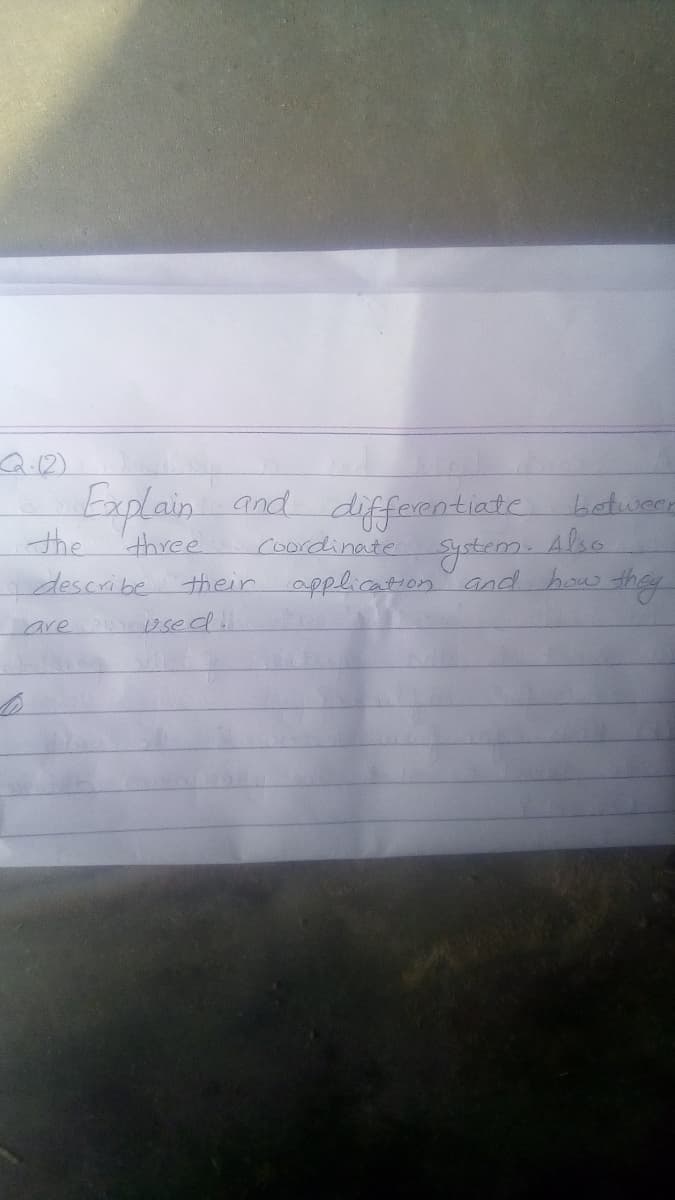 Q.(2)
Explain and differentiate between
the three coordinate system. Also
describe their application and how they
are used.